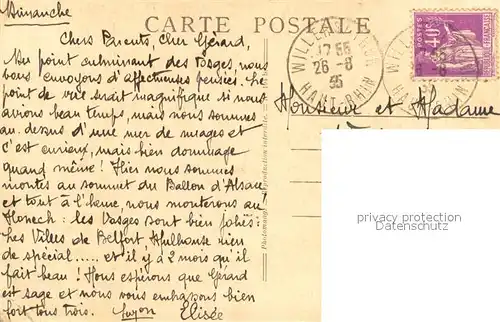 Dimanche
CARTE POSTALE
Chers Parents, Cher Gérard,
Au point culminant des Vosges, nous
vous envoyons d'affectueuses pensées. Le
point de vue serait magnifique si nous
avions beau temps, mais nous sommes
au dessus d'une mer de nuages et
c'est curieux, mais bien dommage
quand même! Hier nous sommes
montés au sommet du Ballon d'Alsace
et tout à l'heure, nous monterons au
Honeck : les Vosges sont bien jolies.
Les Villes de Belfort Mulhouse rien
de spécial ..... et il y a 2 mois qu'il
fait beau! Nous espérons que Gérard
est sage et nous vous embrassons bien
fort tous trois. Elisée
WILLER
HAUT-RHIN
26-8
35
40c
Monsieur et Madame
reproduction interdite
privacy protection
Datenschutz